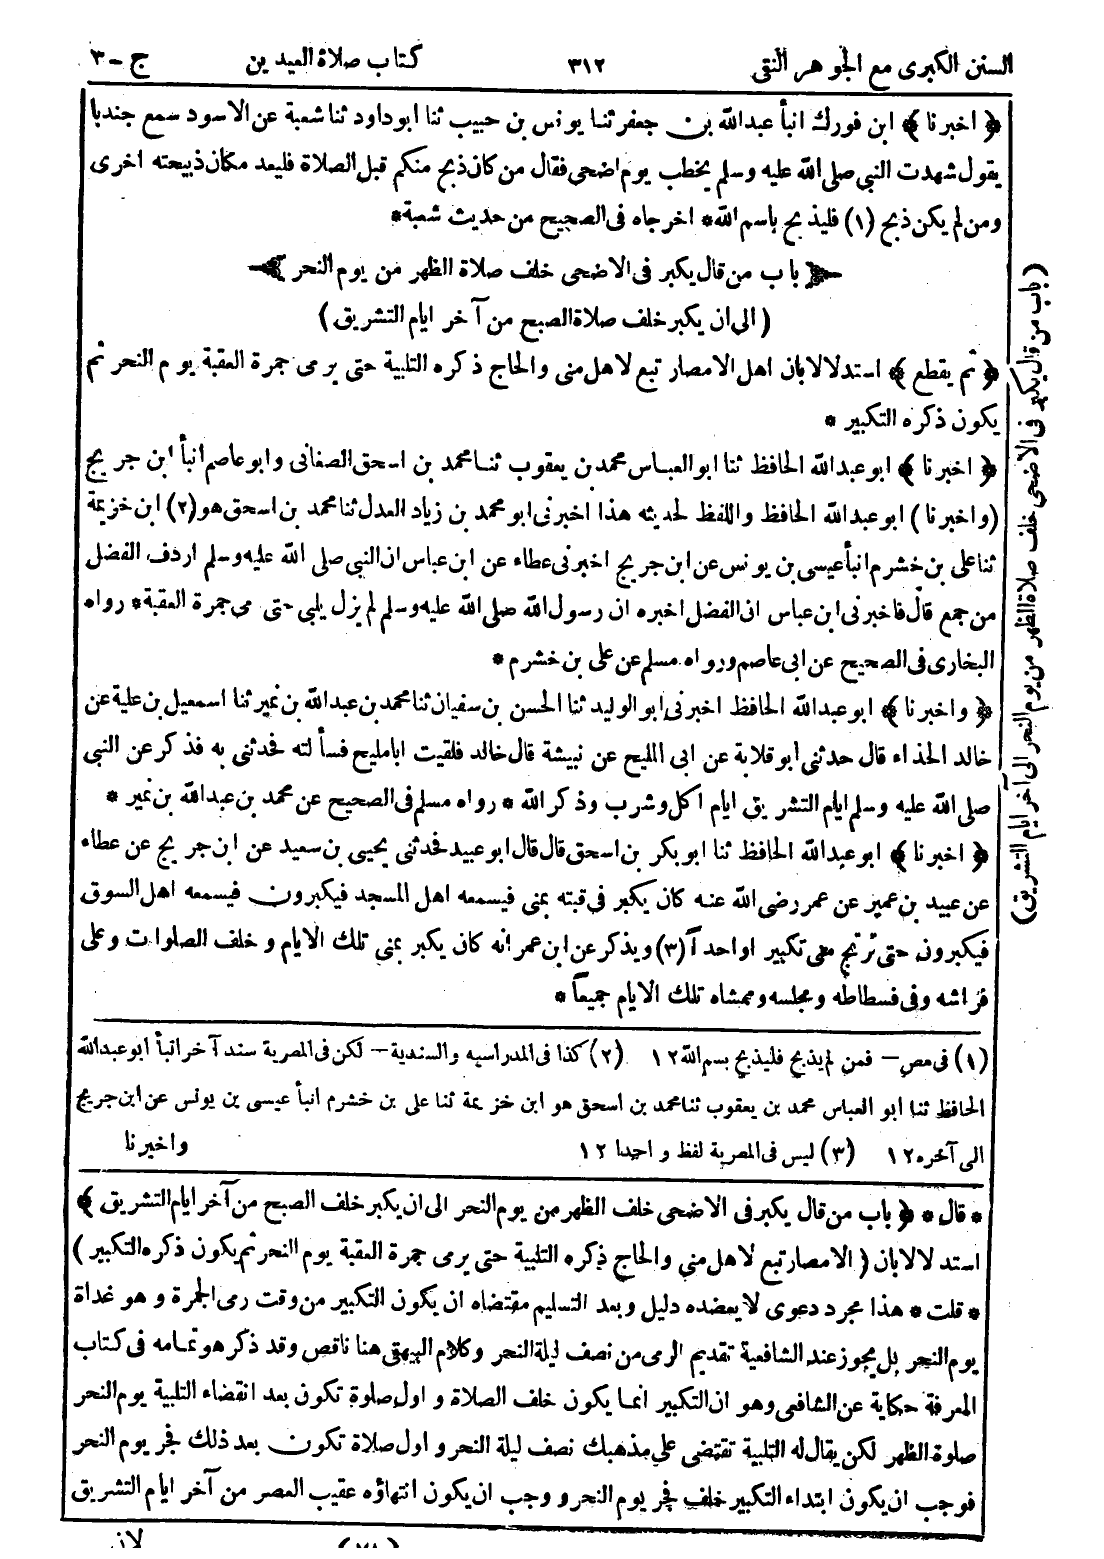 السنن الكبرى مع الجوهر النقى ٣١٢ كتاب صلاة العيدين ج - ٣
﴿ اخبرنا ﴾ ابن فورك انبأ عبدالله بن جعفر ثنا يونس بن حبيب ثنا ابوداود ثنا شعبة عن الاسود سمع جندبا
يقول شهدت النبي صلى الله عليه وسلم يخطب يوم اضحى فقال من كان ذبح منكم قبل الصلاة فليعد مكان ذبيحته اخرى
ومن لم يكن ذبح (١) فليذبح باسم الله * اخرجاه فى الصحيح من حديث شعبة *
﴿ باب من قال يكبر فى الاضحى خلف صلاة الظهر من يوم النحر ﴾
( الى ان يكبر خلف صلاة الصبح من آخر ايام التشريق )
﴿ ثم يقطع ﴾ استدلالا بان اهل الامصار تبع لاهل منى والحاج ذكره التلبية حتى يرمى جمرة العقبة يوم النحر ثم
يكون ذكره التكبير *
﴿ اخبرنا ﴾ ابوعبدالله الحافظ ثنا ابوالعباس محمد بن يعقوب ثنا محمد بن اسحق الصغانى وابوعاصم انبأ ابن جريج
(واخبرنا) ابوعبدالله الحافظ واللفظ لحديثه هذا اخبرنى ابومحمد بن زياد العدل ثنا محمد بن اسحق هو (٢) ابن خزيمة
ثنا على بن خشرم انبأ عيسى بن يونس عن ابن جريج اخبرنى عطاء عن ابن عباس ان النبي صلى الله عليه وسلم اردف الفضل
من جمع قال فاخبرنى ابن عباس ان الفضل اخبره ان رسول الله صلى الله عليه وسلم لم يزل يلبى حتى رمى جمرة العقبة * رواه
البخارى فى الصحيح عن ابى عاصم ورواه مسلم عن على بن خشرم *
﴿ واخبرنا ﴾ ابوعبدالله الحافظ اخبرنى ابوالوليد ثنا الحسن بن سفيان ثنا محمد بن عبدالله بن نمير ثنا اسمعيل بن علية عن
خالد الحذاء قال حدثنى ابوقلابة عن ابى المليح عن نبيشة قال خالد فلقيت ابامليح فسألته فحدثنى به فذكر عن النبي
صلى الله عليه وسلم ايام التشريق ايام اكل وشرب وذكر الله * رواه مسلم فى الصحيح عن محمد بن عبدالله بن نمير *
﴿ اخبرنا ﴾ ابوعبدالله الحافظ ثنا ابوبكر بن اسحق قال قال ابوعبيد فحدثنى يحيى بن سعيد عن ابن جريج عن عطاء
عن عبيد بن عمير عن عمر رضى الله عنه كان يكبر فى قبته بمنى فيسمعه اهل المسجد فيكبرون فيسمعه اهل السوق
فيكبرون حتى ترتج منى تكبير اواحد آ (٣) ويذكر عن ابن عمر انه كان يكبر بمنى تلك الايام و خلف الصلوات وعلى
فراشه وفى فسطاطه ومجلسه وممشاه تلك الايام جميعاً *
(باب من قال يكبر فى الاضحى خلف صلاة الظهر من يوم النحر الى آخر ايام التشريق)
(١) فى مص - فمن لم يذبح فليذبح بسم الله ١٢ (٢) كذا فى المدراسيه والسندية - لكن فى المصرية سند آخر انبأ ابوعبدالله
الحافظ ثنا ابو العباس محمد بن يعقوب ثنا محمد بن اسحق هو ابن خزيمة ثنا على بن خشرم انبأ عيسى بن يونس عن ابن جريج
الى آخره ١٢ (٣) ليس فى المصرية لفظ واحدا ١٢ واخبرنا
* قال * ﴿ باب من قال يكبر فى الاضحى خلف الظهر من يوم النحر الى ان يكبر خلف الصبح من آخر ايام التشريق ﴾
استدلالا بان ( الامصار تبع لاهل منى والحاج ذكره التلبية حتى يرمى جمرة العقبة يوم النحر ثم يكون ذكره التكبير )
* قلت * هذا مجرد دعوى لا يعضده دليل وبعد التسليم مقتضاه ان يكون التكبير من وقت رمى الجمرة و هو غداة
يوم النحر بل يجوز عند الشافعية تقديم الرمى من نصف ليلة النحر وكلام البيهقى هنا ناقص وقد ذكر هو تمامه فى كتاب
المعرفة حكاية عن الشافعى وهو ان التكبير انما يكون خلف الصلاة و اول صلوة تكون بعد انقضاء التلبية يوم النحر
صلوة الظهر لكن يقال له التلبية تقتضى على مذهبك نصف ليلة النحر و اول صلاة تكون بعد ذلك فجر يوم النحر
فوجب ان يكون ابتداء التكبير خلف فجر يوم النحر و وجب ان يكون انتهاؤه عقيب العصر من آخر ايام التشريق
لان